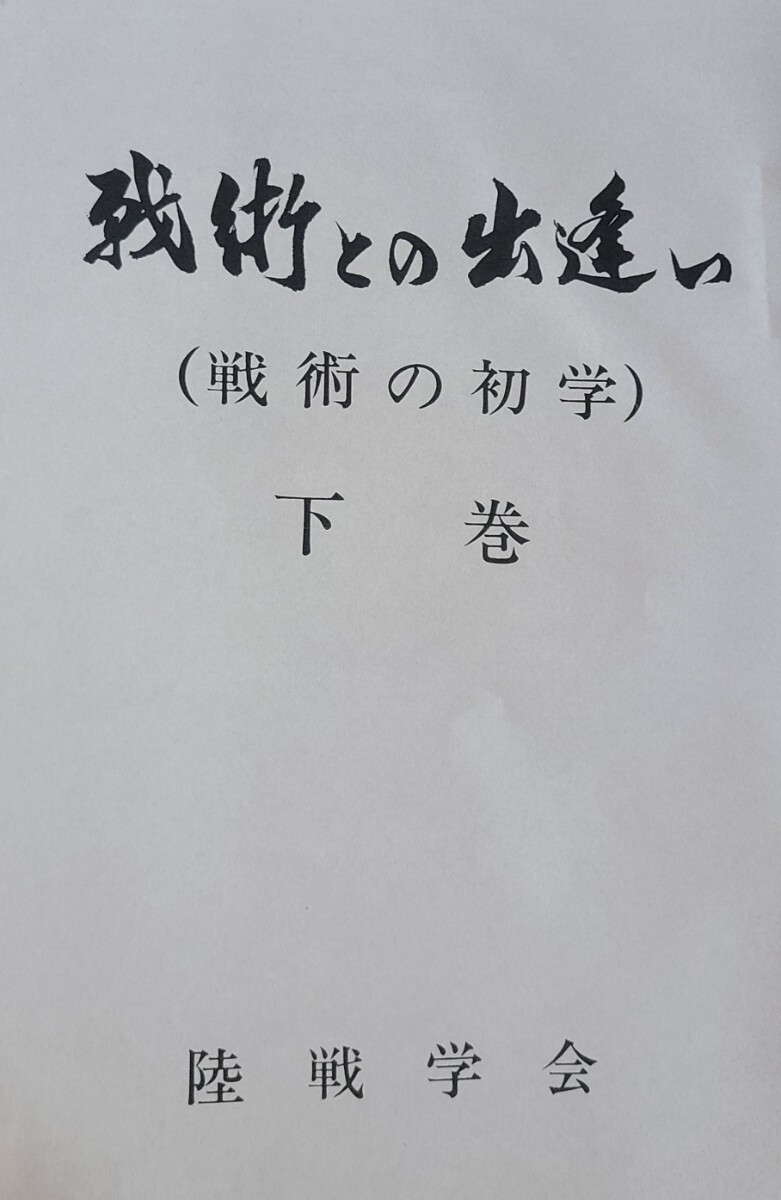 戦術との出逢い
(戦術の初学)
下巻
陸戦学会